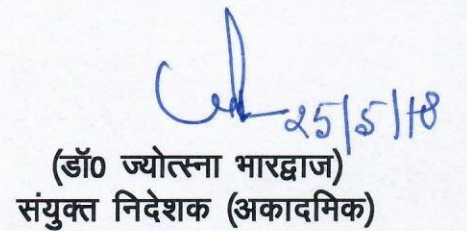 25/5/18
(डॉ0 ज्योत्स्ना भारद्वाज)
संयुक्त निदेशक (अकादमिक)